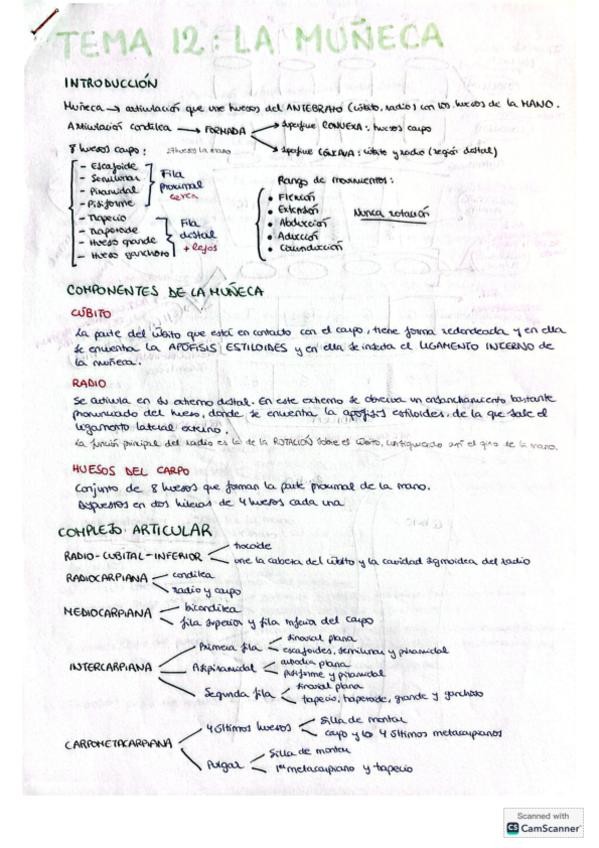 TEMA 12: LA MUÑECA
INTRODUCCIÓN
Muñeca → articulación que une huesos del ANTEBRAZO (cúbito, radio) con los huesos de la MANO.
Articulación condilea → FORMADA
superficie CONVEXA: huesos carpo
superficie CÓNCAVA: cúbito y radio (región distal)
8 huesos carpo:
27 huesos la mano
- Escafoide
- Semilunar
- Piramidal
- Pisiforme
Fila proximal
cerca
- Trapecio
- Trapezoide
- Hueso grande
- Hueso ganchoso
Fila distal
+ lejos
Rango de movimientos:
• Flexión
• Extensión
• Abducción
• Aducción
• Circunducción
Nunca rotación
COMPONENTES DE LA MUÑECA
CÚBITO
La parte del cúbito que está en contacto con el carpo, tiene forma redondeada y en ella
se encuentra la APÓFISIS ESTILOIDES y en ella se inserta el LIGAMENTO INTERNO de
la muñeca.
RADIO
Se articula en su extremo distal. En este extremo se observa un ensanchamiento bastante
pronunciado del hueso, donde se encuentra la apófisis estiloides, de la que sale el
ligamento lateral externo.
La función principal del radio es la de la ROTACIÓN sobre el cúbito, consiguiendo así el giro de la mano.
HUESOS DEL CARPO
Conjunto de 8 huesos que forman la parte proximal de la mano.
Dispuestos en dos hileras de 4 huesos cada una
COMPLEJO ARTICULAR
RADIO-CUBITAL-INFERIOR
trocoide
une la cabeza del cúbito y la cavidad sigmoidea del radio
RADIOCARPIANA
condilea
radio y carpo
MEDIOCARPIANA
bicondilea
fila superior y fila inferior del carpo
INTERCARPIANA
Primera fila
sinovial plana
escafoides, semilunar y piramidal
Pisipiramidal
plana
pisiforme y piramidal
Segunda fila
sinovial plana
trapecio, trapezoide, grande y ganchoso
CARPOMETACARPIANA
4 últimos huesos
Silla de montar
carpo y los 4 últimos metacarpianos
Pulgar
Silla de montar
1er metacarpiano y trapecio
Scanned with
CS CamScanner